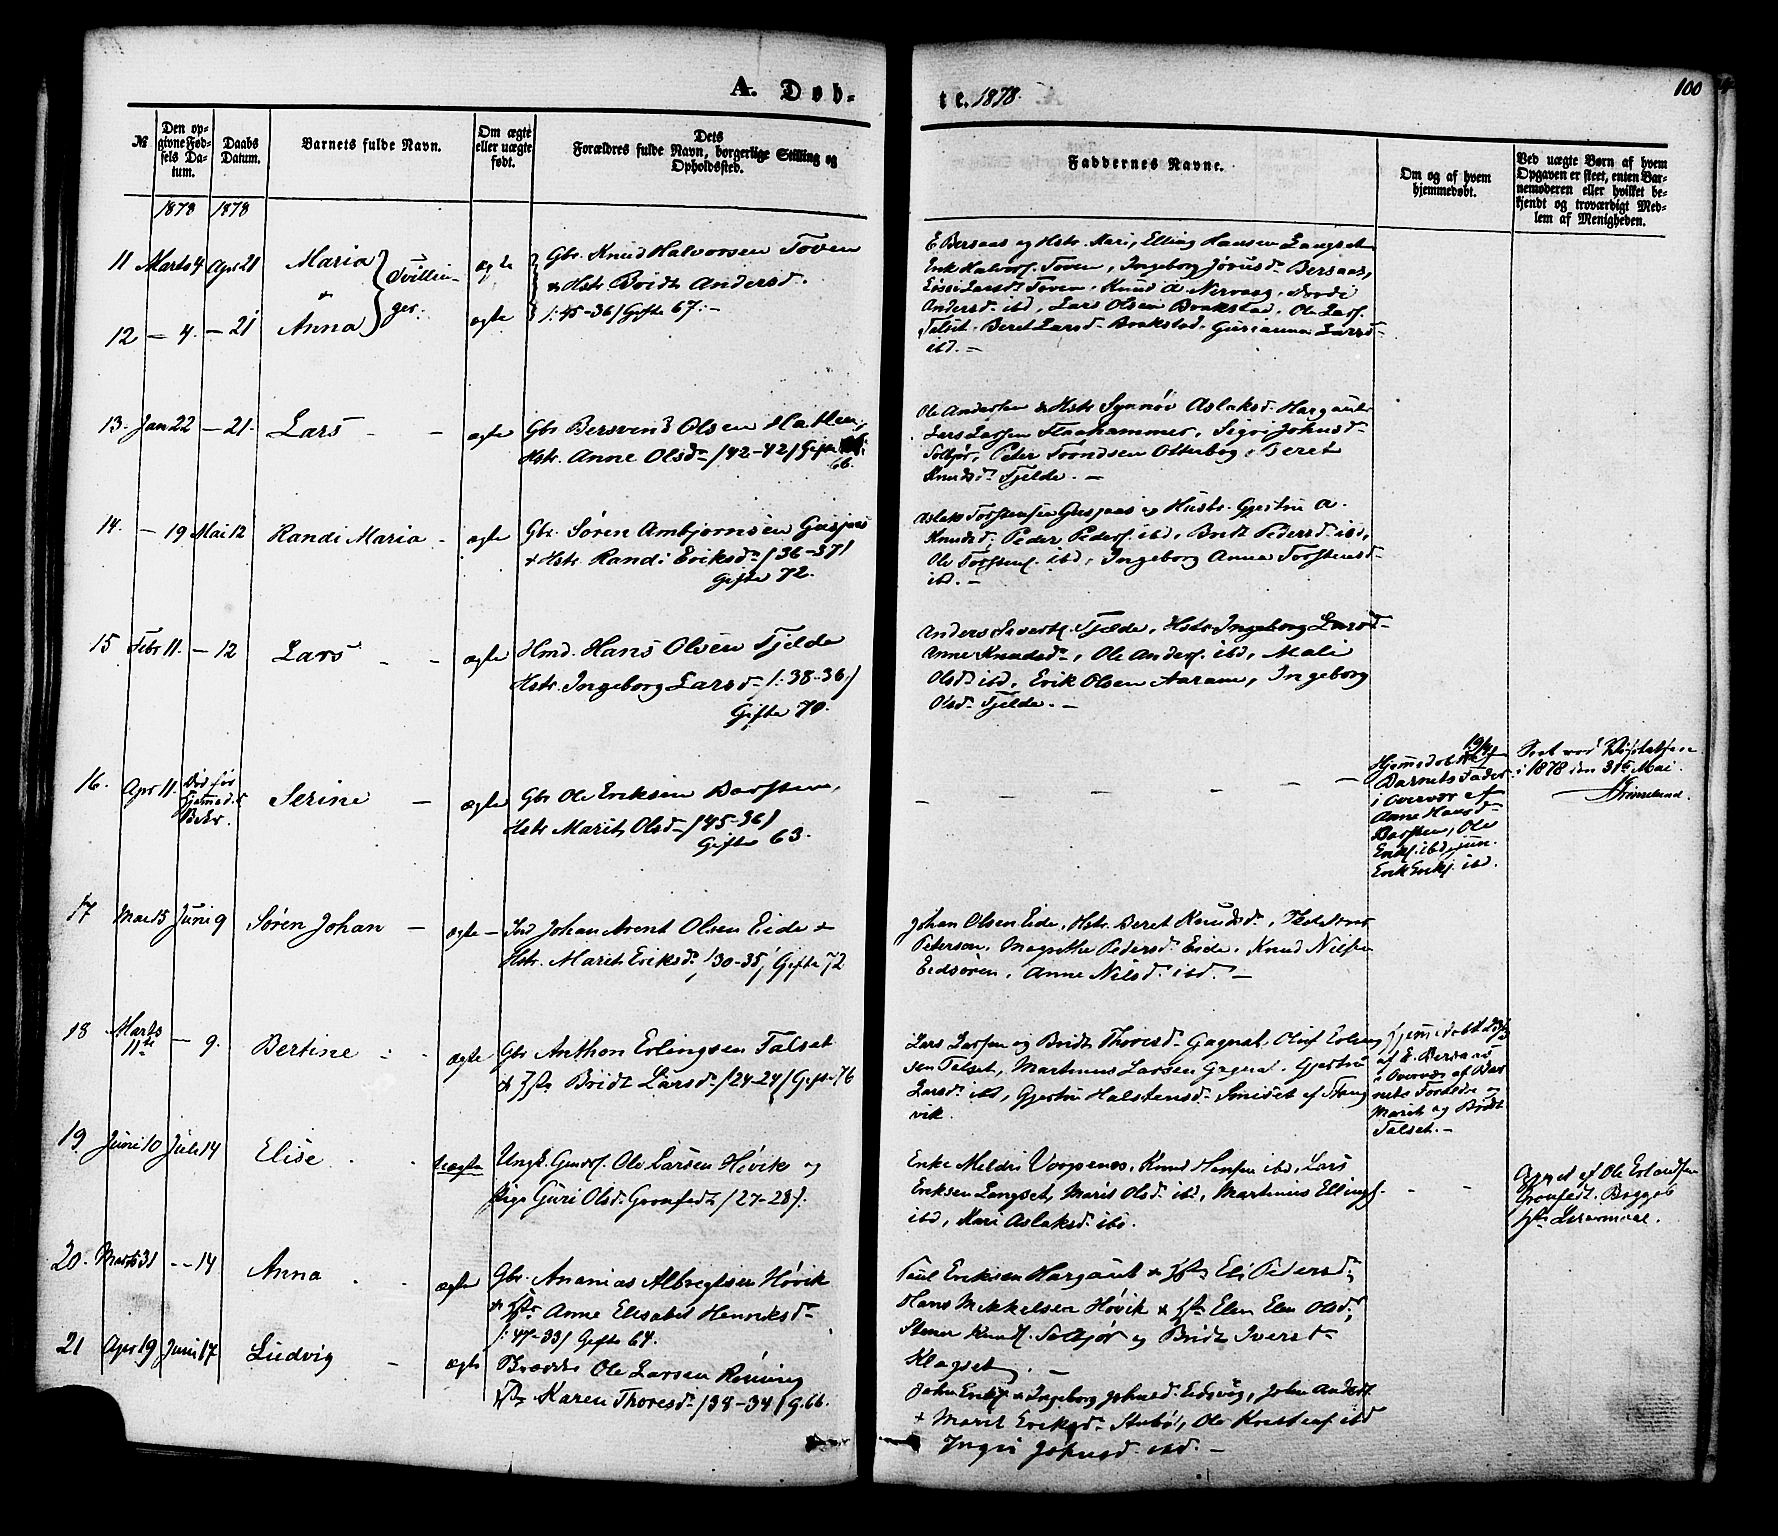 A. Døb-
te. 1878.
100
№
Den opgivne Fødsels Datum.
Daabs Datum.
Barnets fulde Navn.
Om ægte eller uægte født.
Dets Forældres fulde Navn, borgerlige Stilling og Opholdssted.
Faddernes Navne.
Om og af hvem hjemmedøbt.
Ved uægte Børn af hvem Opgaven er skeet, enten Barnemoderen eller hvilket bekjendt og troværdigt Medlem af Menigheden.
1878 1878
11 Marts 4 Apr 21 Maria Tvillin- ægte Gbr. Knud Halvorsen Toven
&
12 – 4. – 21 Anna ger: ægte & Hstr Bridt Andersd.
/:45–36/ Gifte 67.–
E Bersaas og Hstr. Kari, Elling Hansen Langset
Erik Halvors. Toven, Ingeborg Jörusd. Bersaas,
Larsd. Toven, Knud A Nervaag,
Andersd ibd, Lars Olsen Brakstad, Ole Lars.
Talset. Beret Larsd. Brakstad, Larsd.
ibd.–
13. Jan 22 – 21. Lars – – ægte Gbr Bersvend Olsen Hatlen,
Hstr. Anne Olsd. /42–42/ Gifte
66.
Ole Andersen & Hstr Synnøv Aslaksd. Hargaut
Lars Larsen Flaahammer, Sigri Johnsd.
Solljør, Peter Trondsen Otterbog, Beret
Knudsd. Fjelde.–
14. – 19 Mai 12 Randi Maria – ægte Gbr. Søren Ambjørnsen Gusjaas
& Hstr. Randi Eriksd. /36–37/
Gifte 72.
Aslak Torstensen Gusjaas og Hustr. Gjertru A.
Knudsd. Peder Peders. ibd, Bridt Pedersd. ibd,
Ole Torstens. ibd, Ingeborg Anna Torstensd.
ibd.–
15 Febr 11. – 12 Lars – – ægte Hmd. Hans Olsen Fjelde
Hstr. Ingeborg Larsd. /:38–36/
Gifte 70.
Anders Siverts. Fjelde, Hstr. Ingeborg Larsd.
Anne Knudsd., Ole Anders. ibd, Mali
Olsd. ibd, Erik Olsen Aaram, Ingeborg
Olsd. Fjelde.–
16. Apr 11. Død før Serine – ægte Gbr Ole Eriksen Barsten,
Hstr Marit Olsd. /45–36/
Gifte 63.
Hjemmedøbt af
Barnets Fader
i Overvær af
Anne Hansd.
Barsten, Ole
Eriks. ibd jun.
Erik Eriks. ibd.
i 1878 den 31te Mai.
17 Mai 5 Juni 9 Søren Johan – ægte – Johan Arent Olsen Eide &
Hstr. Marit Eriksd. /30–35/ Gifte 72
Johan Olsen Eide, Hstr. Beret Knudsd.,
Peterson, Magrethe Pedersd. Eide, Knud Nilsen
Eidsøren, Anne Nilsd. ibd.–
18 Marts 11te – 9. Bertine – – ægte Gbr Anthon Erlingsen Talset
& Hstr Bridt Larsd. /24–24/ Gift 76
Lars Larsen og Bridt Thoresd. Gagnat. Oluf Erling-
sen Talset, Martinus Larsen Gagnat. Gjertru
Larsd. ibd, Gjertru Halstensd. Smiset af Stang-
vik.
Hjemmedøbt
af E. Bersaas
i Overvær af Bar-
nets Forældre og
Marit og Bridt
Talset.–
19 Juni 10 Juli 14 Elise uægte Ungk. Ole Larsen Høvik og
Pige Guri Olsd. Grønfedt /27–28/.
Enke Meldri Vorpenes, Knud Hansen ibd, Lars
Eriksen Langset, Marit Olsd. ibd, Martinus Ellings.
ibd, Kari Aslaksd. ibd.
Opgivet af Ole Erlandsen
Grønfedt.
20. Marts 31 – – 14 Anna ægte Gbr. Ananias Albregtsen Høvik
& Hstr Anne Elisabet Henriksd.
/:47–33/ Gifte 64.
Paul Eriksen Hargaut & Hstr Eli Pedersd.,
Hans Mikkelsen Høvik & Hstr Elen Olsd.,
Knuds. Solljør og Bridt Iversd.
Klagset.–
21 Apr 19 Juni 17 Ludvig – ægte Ole Larsen Röning
Hstr Karen Thoresd. /38–34/ G. 66.
John Eriks. & Ingeborg Johnsd. Eidsvåg, John Anders.
& Marit Eriksd. Stubø, Ole Kristens. ibd
Ingri Johnsd. ibd.–